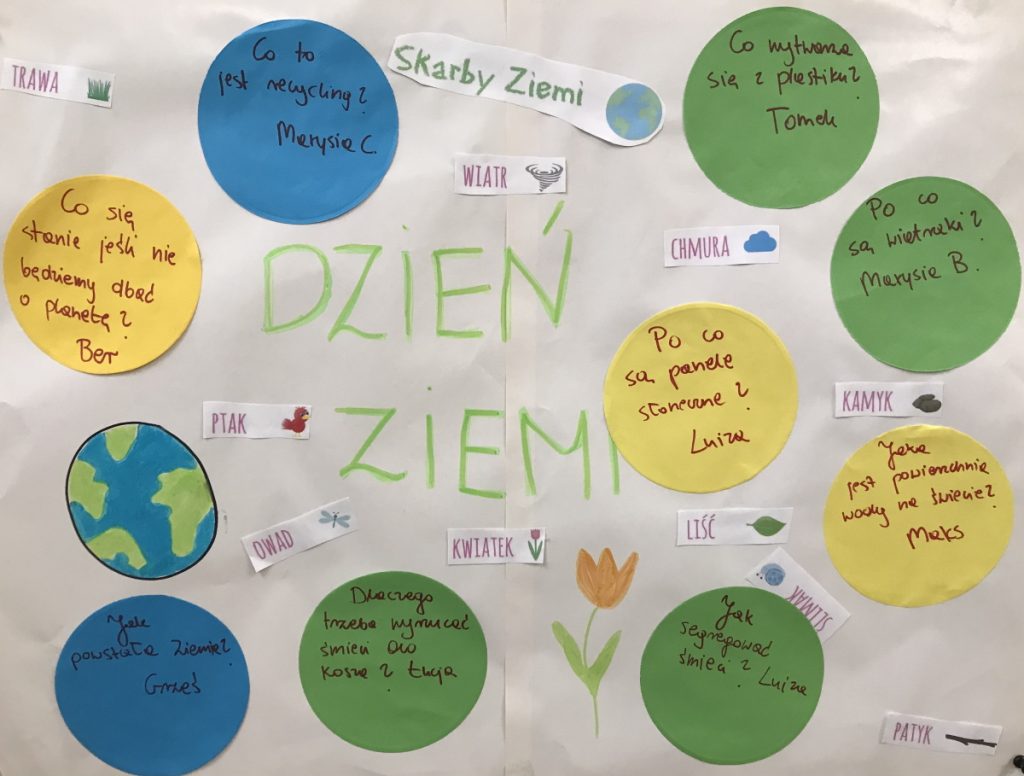 TRAWA
Co to
jest recycling?
Marysia C.
Skarby Ziemi
Co wytwarza
się z plastiku?
Tomek
WIATR
Co się
stanie jeśli nie
będziemy dbać
o planetę?
Ber
DZIEŃ
ZIEMI
CHMURA
Po co
są wiatraki?
Marysia B.
Po co
są panele
słoneczne?
Luiza
KAMYK
PTAK
Jaka
jest powierzchnia
wody na świecie?
Maks
OWAD
KWIATEK
LIŚĆ
ŚLIMAK
Jak
powstała Ziemia?
Grześ
Dlaczego
trzeba wyrzucać
śmieci do
kosza? Łucja
Jak
segregować
śmieci?
Luiza
PATYK